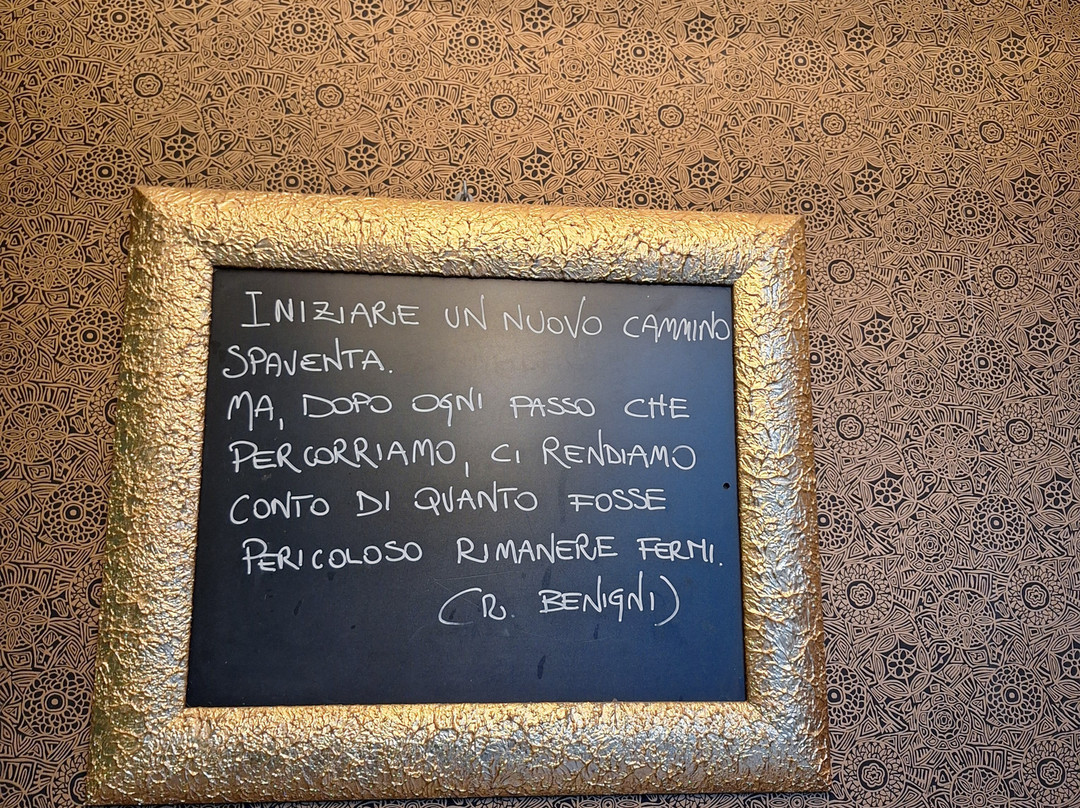 INIZIARE UN NUOVO CAMMINO
SPAVENTA.
MA, DOPO OGNI PASSO CHE
PERCORRIAMO, CI RENDIAMO
CONTO DI QUANTO FOSSE
PERICOLOSO RIMANERE FERMI.
(R. BENIGNI)